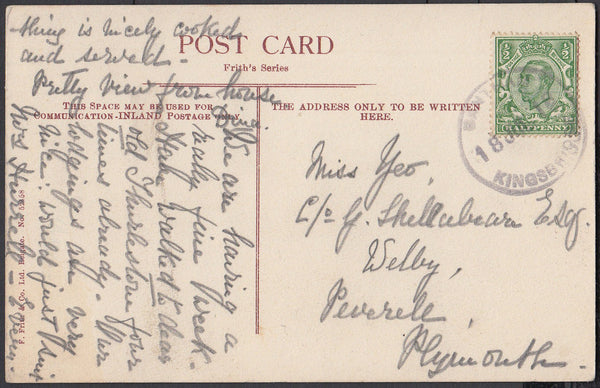 thing is nicely cooked
and served -
Pretty view from house
POST CARD
Frith's Series
THIS SPACE MAY BE USED FOR
COMMUNICATION-INLAND POSTAGE ONLY
THE ADDRESS ONLY TO BE WRITTEN
HERE.
We are having a
really fine week.
Have walked to dear
old Thurlestone four
times already. Our
lodgings are very
nice. Would just suit
Mrs Hurrell - Every
F. Frith & Co. Ltd. Reigate. No.
½
½
HALFPENNY
18
KINGSBRIDGE
Miss Yeo,
C/o G. Shellabear Esq.
Welby,
Peverell,
Plymouth.